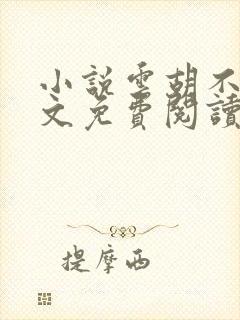 小說雲胡不
文免費閱讀
提摩西